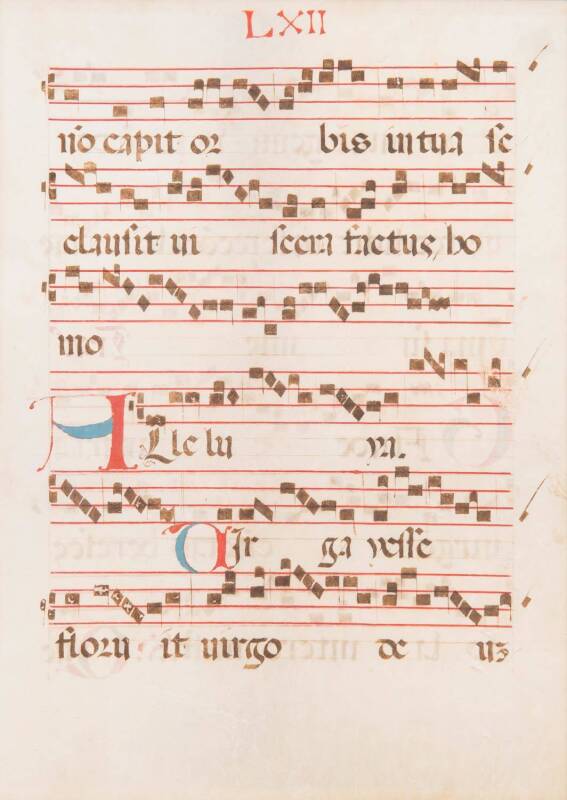 LXII
no capit or bis in tua se
clausit in scera factus ho
mo
Alle lu ya.
Virga yesse
floru it uirgo de uz